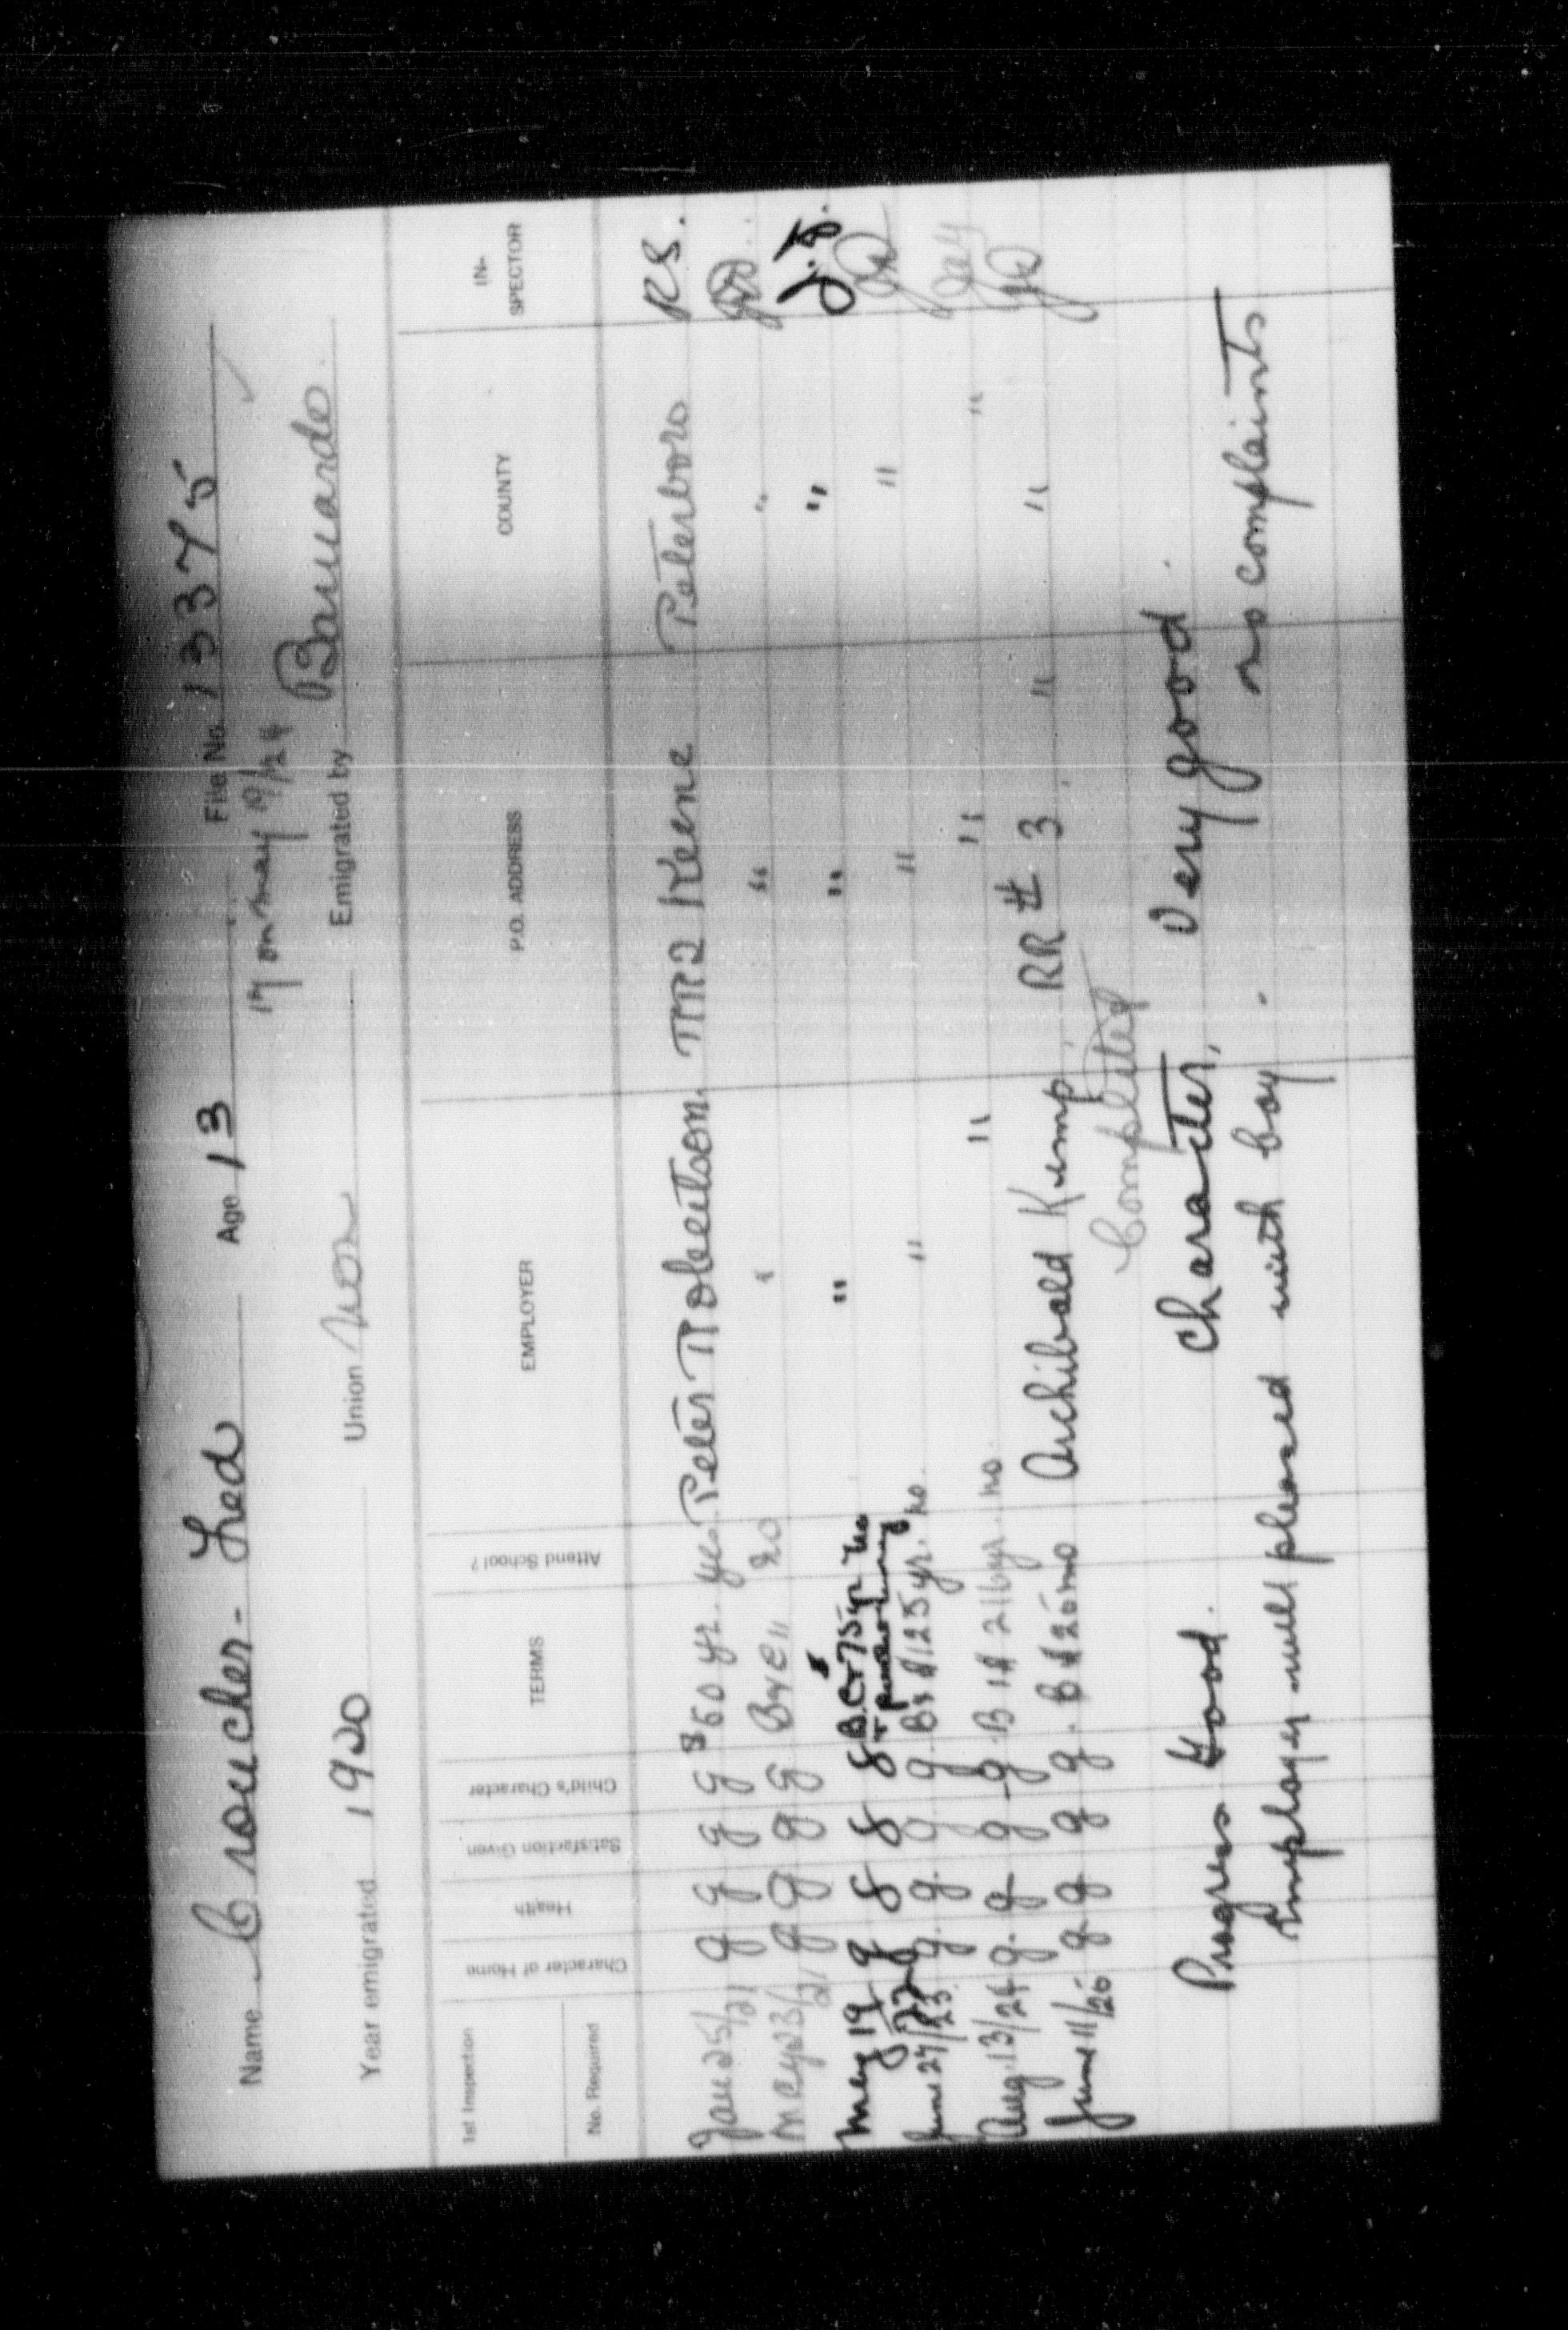 Name Croucher - Fred Age 13 File No. 13375
17 on may 19/24
Year emigrated 1920 Union Emigrated by Barnardo
1st Inspection
No. Required
Character of Home Health Satisfaction Given Child's Character TERMS Attend School? EMPLOYER P.O. ADDRESS COUNTY IN-SPECTOR
Jan 25/21 g g g g $60 yr. yes Peter Robertson RR2 Keene Peterboro RS.
May 23/21 g g g g B & C " no " " "
May 19/22 g g g g B. C & 75 yr no " " " J.J.
June 27/23 g. g. g g B & 125 yr. no. " " "
Aug. 13/24 g. g g g. B 216 yr. no. " " "
June 11/25 g g g g. 25 mo Archibald Kemp. RR # 3 " "
Completed
Progress Good. Character, Very good.
Employer well pleased with boy. no complaints